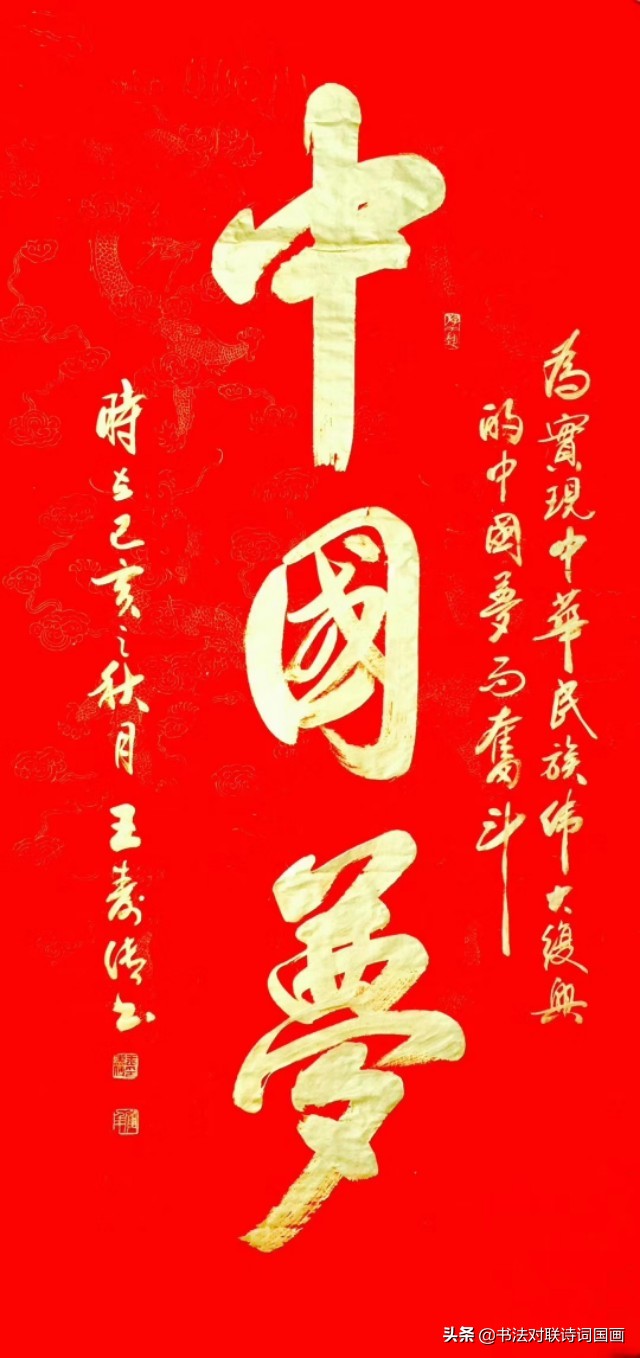 中國夢
為實現中華民族偉大復興
的中國夢而奮斗
時在己亥之秋月 王壽清书
头条 @书法对联诗词国画